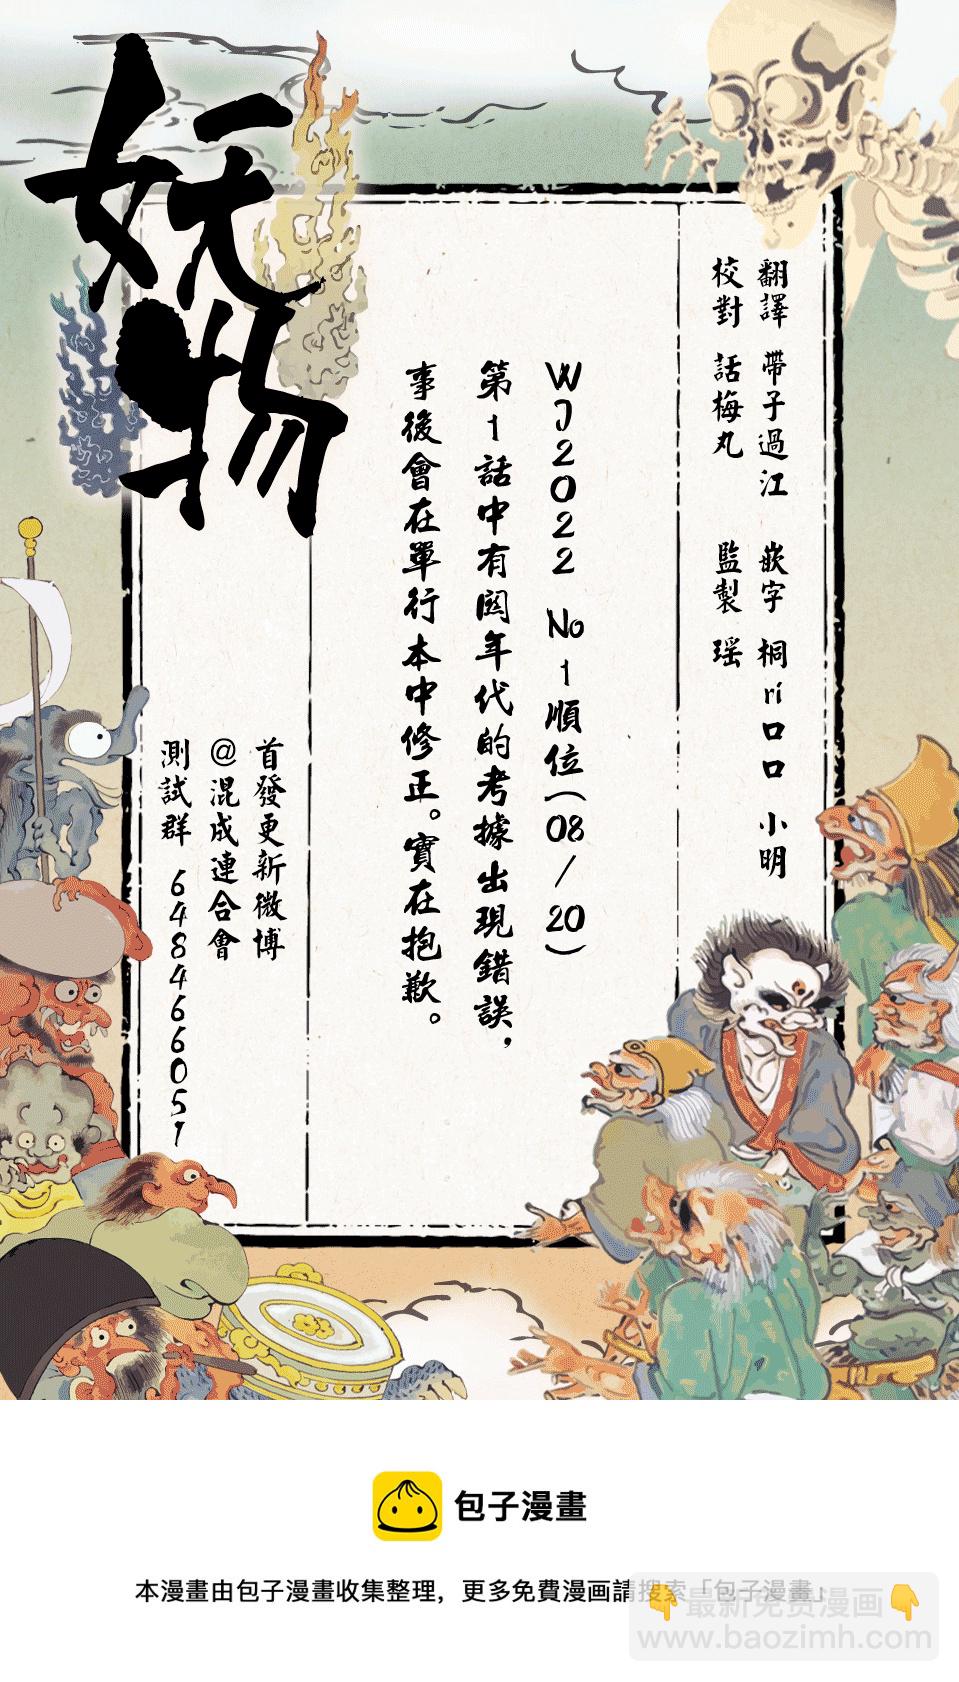 翻譯 帶子過江 嵌字 桐ri口口 小明
校對 話梅丸 監製 瑶
WJ2022 No1順位(08/20)
第1話中有関年代的考據出現錯誤，
事後會在單行本中修正。實在抱歉。
妖物
首發更新微博
@混成連合會
測試群 648466051
包子漫畫
本漫畫由包子漫畫收集整理，更多免費漫画請搜索「包子漫畫」
👇最新免费漫画👇
www.baozimh.com